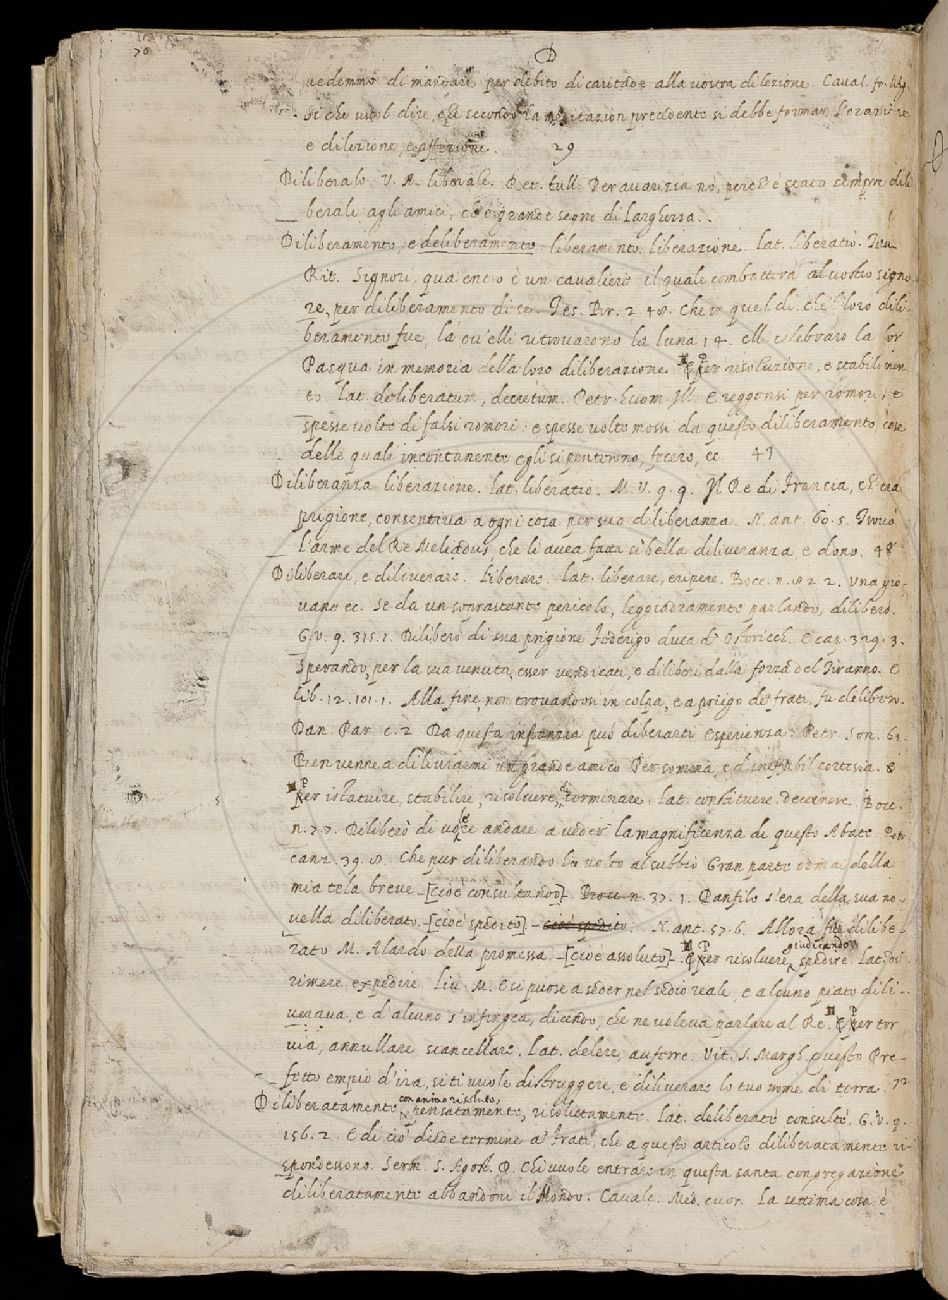 70
D
vedemmo di mandare per debito di caritade alla vostra dilezione. Caval. fr. ling.
Si che vuol dire, che secondo la meditazion precedente si debbe formar l'orazione
e dilezione, e affezione. 29
Diliberale V. A. liberale. Ret. Tull. Per avarizia nò, perch'è stato sempre dili
berali agli amici, ed è grande segno di Larghezza.
Diliberamento, e deliberamento liberamento, liberazione. Lat. liberatio. Tav.
Rit. Signori, qua entro è un cavaliere il quale combatterà al vostro signo
re, per diliberamento di se. Tes. Br. 2. 48. Che in quel dì che 'l loro dili
beramento fue, là ov'elli ritrovarono la luna 14. elli celebraro la lor
Pasqua in memoria della loro diliberazione. ¶ Per risoluzione, e stabilimen
to Lat. deliberatum, decretum. Petr. huom. ill. E reggonsi per romori, e
spesse volte di falsi romori: e spesse volte mossi da questo diliberamento, cose
delle quali incontanente egli si penterono, fecero, ec. 47
Diliberanza liberazione. Lat. liberatio. M. V. 9. 9. Il Re di Francia, ch'era
prigione, consentiva a ogni cosa per sua diliberanza. N. ant. 60. 5. Trovò
l'arme del Re Meliadus, che li avea fatta sì bella diliveranza e dono. 48
Diliberare, e diliverare. Liberare. Lat. liberare, eripere. Bocc. n. 22. Una gio-
vane ec. se da un soprastante pericolo, leggiadramente parlando, diliberò.
G. V. 9. 315. 1. Diliberò di sua prigione Federigo duca d'Ostericch. E cap. 329. 3.
Sperando, per la sua venuta, esser vendicati, e diliberi dalla forza del Tiranno. E
lib. 12. 101. 1. Alla fine, non trovandosi in colpa, e a priego de' frati, fu dilibero.
Dan. Par. c. 2 Da questa instanzia può diliberarti esperienza. Petr. Son. 61.
Ben venne a dilivrarmi un grande amico Per somma, e d ineffabil cortesia. E
¶ Per istatuire, stabilire, risolvere, determinare. Lat. constituere, decernere. Bocc.
n. 7. 7. Diliberò di volere andare a veder la magnificenza di questo Abate Petr.
canz. 39. 8. Che pur diliberando ho volto al subbio Gran parte omai della
mia tela breve -[cioè consultando]- Bocc. n. 37. 1. Panfilo s'era della sua no-
vella diliberato. -[cioè spedito]- cioè spedito. N. ant. 57. 6. Allora fue dilibe-
rato M. Alardo della promessa. -[cioè assoluto]- ¶ Per risolvere, giudicando, spedire. Lat. di
rimere, expedire. Liv. M. E si puose a seder nel sedio reale, e alcuno piato dili-
verava, e d'alcuno s'infingea, dicendo, che ne voleva parlare al Re. ¶ Per tor
via, annullare, scancellare, Lat. delere, auferre. Vit. S. Margh. Questo Pre-
fetto empio d'ira, si ti vuole distruggere, e diliverare lo tuo nome di terra. 72
Diliberatamente con animo risoluto, pensatamente, risolutamente. Lat. deliberatè consultè. G. V. 9.
156. 2. E di ciò diede termine a' Frati, che a questo articolo diliberatamente ri-
spondessono. Serm. S. Agost. D. Chi vuole entrare in questa santa congregazione
diliberatamente abbandoni il Mondo. Caval. Med. cuor. La settima cosa è